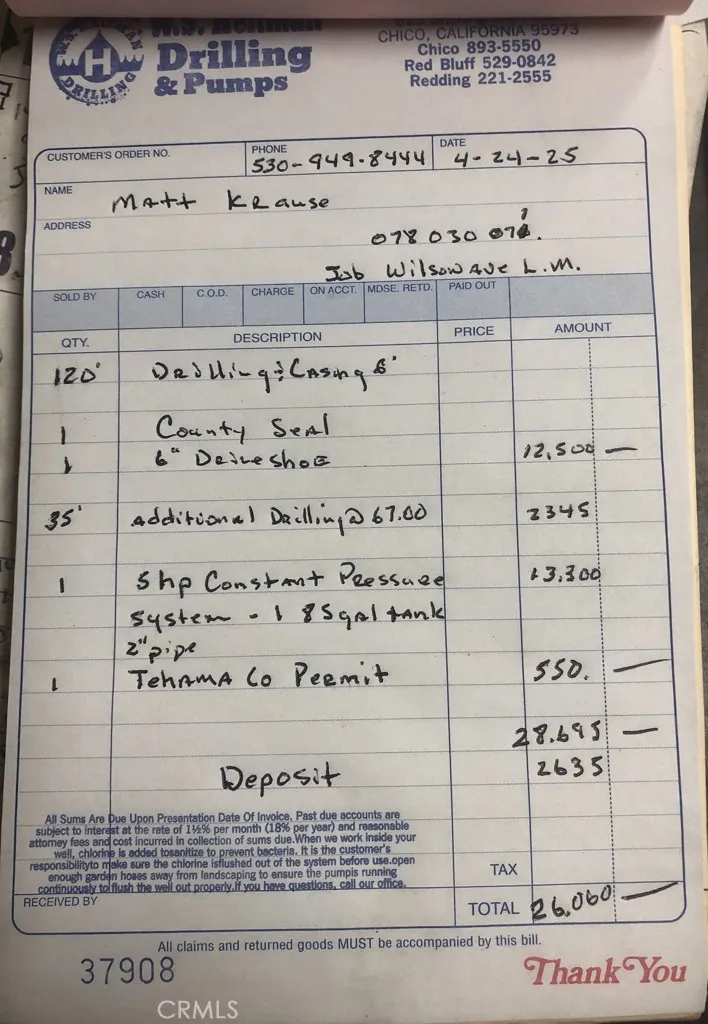 Drilling
& Pumps
DRILLING
H
CHICO, CALIFORNIA 95973
Chico 893-5550
Red Bluff 529-0842
Redding 221-2555
CUSTOMER'S ORDER NO.
PHONE
530-949-8444
DATE
4-24-25
NAME
Matt Krause
ADDRESS
078 030 071.
Job Wilson Ave L.M.
SOLD BY CASH C.O.D. CHARGE ON ACCT. MDSE. RETD. PAID OUT
QTY. DESCRIPTION PRICE AMOUNT
120' Drilling & Casing 6"
1 County Seal
1 6" Drive shoe 12,500 —
35' Additional Drilling @ 67.00 2345
1 5hp Constant Pressure 13,300
System - 1 85gal tank
2" pipe
1 Tehama Co Permit 550. —
28.695 —
Deposit 2635
All Sums Are Due Upon Presentation Date Of Invoice, Past due accounts are
subject to interest at the rate of 1½% per month (18% per year) and reasonable
attorney fees and cost incurred in collection of sums due.When we work inside your
well, chlorine is added tosanitize to prevent bacteria. It is the customer's
responsibilityto make sure the chlorine isflushed out of the system before use.open
enough garden hoses away from landscaping to ensure the pumpis running
continuously to flush the well out properly.If you have questions, call our office.
TAX
RECEIVED BY
TOTAL 26,060 —
All claims and returned goods MUST be accompanied by this bill.
37908
Thank You
CRMLS